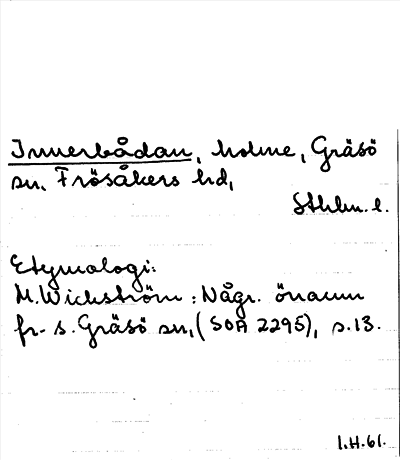 Innerbådan, holme, Gräsö
sn, Frösåkers hd,
Sthlm. l.
Etymologi:
M. Wickström: Någr. önamn
fr. s. Gräsö sn, (SOA 2295), s. 13.
I.H. 61.